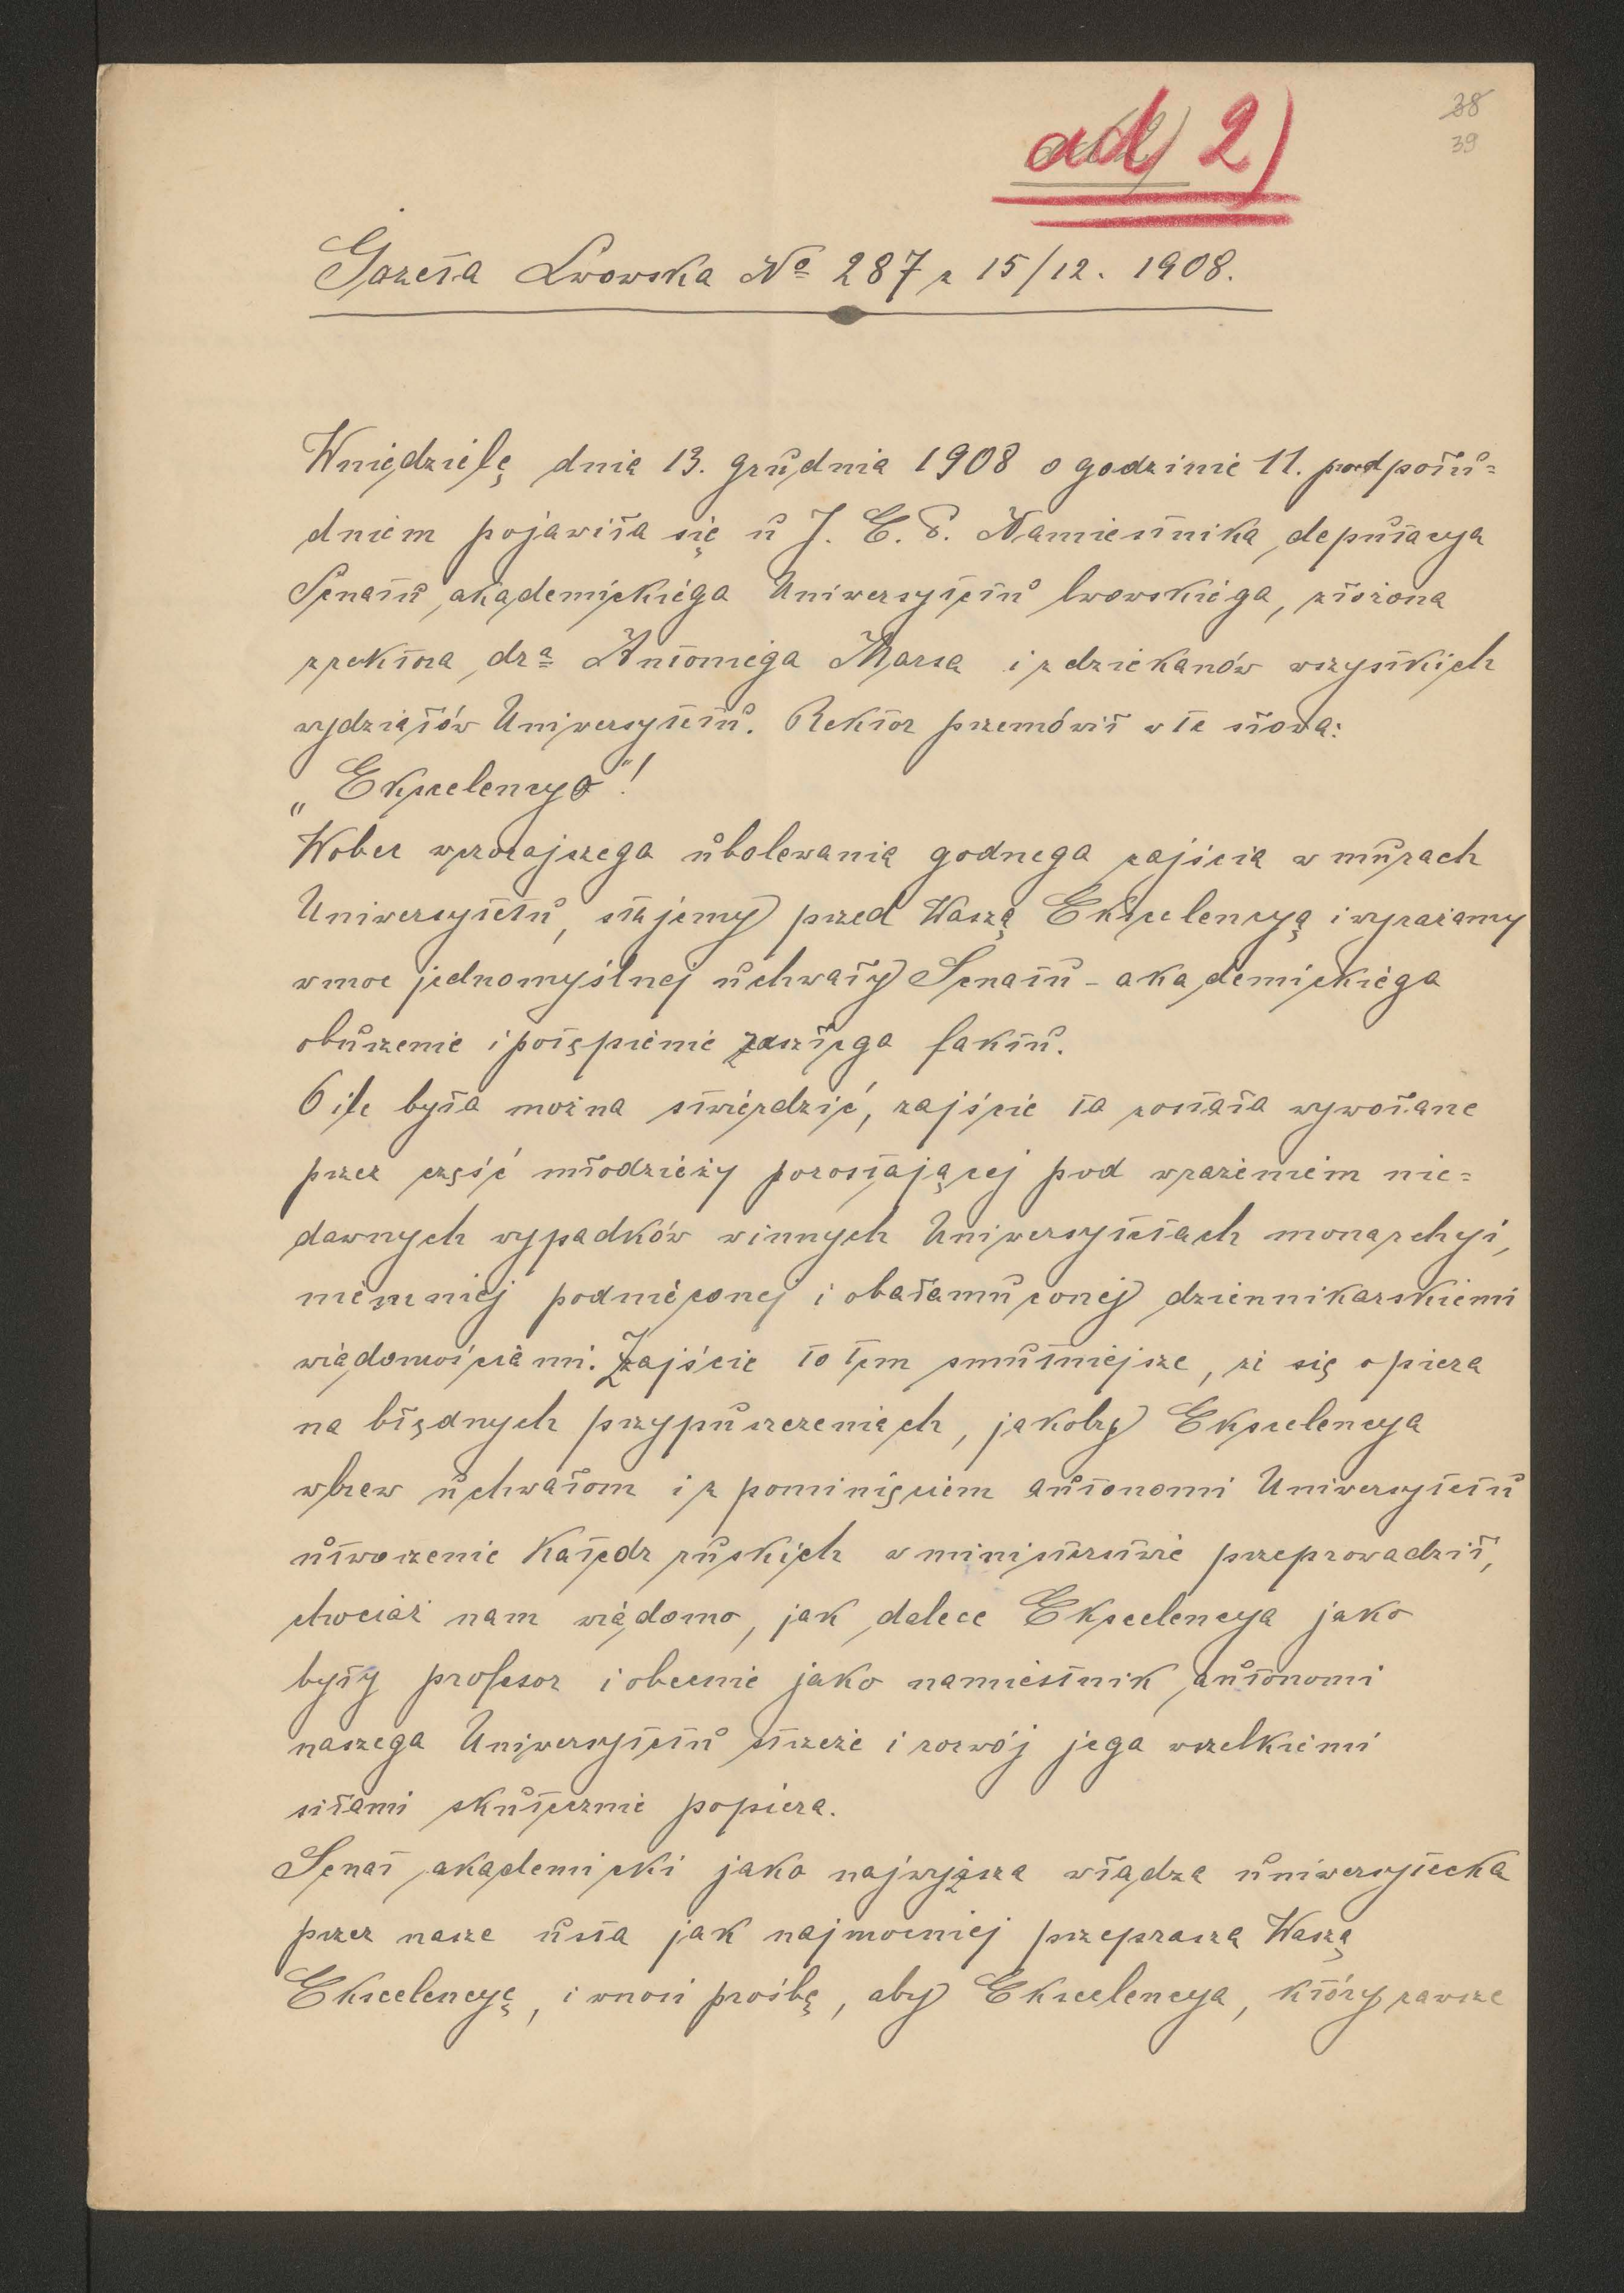 38
39
ad 2)
Gazeta Lwowska № 287 z 15/12. 1908.
W niedzielę dnia 13. grudnia 1908 o godzinie 11. przed połu=
dniem pojawiła się u J. E. P. Namiestnika deputacya
Senatu akademickiego Uniwersytetu lwowskiego, złożona
z rektora dra Antoniego Marsa i z dziekanów wszystkich
wydziałów Uniwersytetu. Rektor przemówił w te słowa:
„Ekscelencyo"!
Wobec wczorajszego ubolewania godnego zajścia w murach
Uniwersytetu, stajemy przed Waszą Ekscelencyą i wyrażamy
w moc jednomyślnej uchwały Senatu - akademickiego
oburzenie i potępienie zaszłego faktu.
O ile było można stwierdzić, zajście to zostało wywołane
przez część młodzieży pozostającej pod wrażeniem nie=
dawnych wypadków w innych Uniwersytetach monarchyi,
niemniej podnieconej i obałamuconej dziennikarskiemi
wiadomościami. Zajście to tem smutniejsze, że się opiera
na błędnych przypuszczeniach, jakoby Ekscelencya
wbrew uchwałom i z pominięciem autonomi Uniwersytetu
utworzenie Katedr ruskich w ministerstwie przeprowadził,
chociaż nam wiadomo, jak dalece Ekscelencya jako
były profesor i obecnie jako namiestnik autonomi
naszego Uniwersytetu strzeże i rozwój jego wszelkiemi
siłami skutecznie popiera.
Senat akademicki jako najwyższa władza uniwersytecka
przez nasze usta jak najmocniej przeprasza Waszą
Ekscelencyę, i wnosi prośbę, aby Ekscelencya, który zawsze